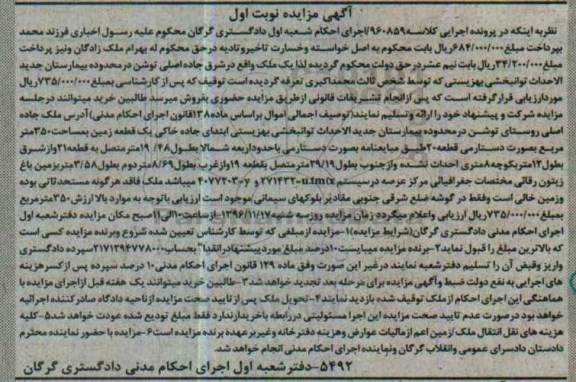 آگهی مزایده نوبت اول
نظر به اینکه در پرونده اجرایی کلاسه ۹۶۰۸۵۹/اجرای احکام شعبه اول دادگستری گرگان محکوم علیه رسول اخباری فرزند محمد
بپرداخت مبلغ ۶۸۴/۰۰۰/۰۰۰ریال بابت محکوم به اصل خواسته وخسارت تاخیر وتادیه در حق محکوم له بهرام ملک زادگان ونیز پرداخت
مبلغ ۳۴/۲۰۰/۰۰۰ریال بابت نیم عشر در حق دولت محکوم گردیده لذا یک ملک واقع در شرق جاده اصلی توشن در محدوده بیمارستان جدید
الاحداث توانبخشی بهزیستی که توسط شخص ثالث محمد اکبری تعرفه گردیده است توقیف که پس از کارشناسی بمبلغ ۷۳۵/۰۰۰/۰۰۰ریال
مورد ارزیابی قرار گرفته است که پس از انجام تشریفات قانونی از طریق مزایده حضوری بفروش میرسد طالبین خرید میتوانند در جلسه
مزایده شرکت و پیشنهاد خود را ارائه وتسلیم نمایند(توصیف اجمالی اموال بر اساس ماده ۱۳۸قانون اجرای احکام مدنی) آدرس ملک جاده
اصلی روستای توشن در محدوده بیمارستان جدید الاحداث توانبخشی بهزیستی ابتدای جاده خاکی یک قطعه زمین بمساحت ۳۵۰متر
مربع بصورت دستدارمی قطعه ۲۰طبق مبایعنامه بصورت دستدارمی باحدوداربعه شمالا بطول ۱۹/۴۸ متر متصل به قطعه ۲۱واز شرق
بطول ۱۲متر بکوچه ۸متری احداث نشده وازجنوب بطول ۲۹/۱۹متر متصل بقطعه ۱۹وازغرب بطول ۸/۶۹متر دوم بطول ۳/۵۸متر بزمین باغ
زیتون رقائی مختصات جغرافیائی مرکز عرصه در سیستم u.f.mx-۲۷۱۴۳۲ و y-۴۰۷۷۲۰۳ میباشد ملک فاقد هرگونه مستحدثاتی بوده
وزمین خالی است وفقط در گوشه ضلع شرقی جنوبی مقادیر بلوکهای سیمانی موجود است ارزیابی با توجه به موارد بالا ارزش ۳۵۰متر مربع
بمبلغ ۷۳۵/۰۰۰/۰۰۰ریال ارزیابی واعلام میگردد زمان مزایده روز سه شنبه ۱۳۹۶/۱۱/۱۷ از ساعت ۱۰الی ۱۱صبح مکان مزایده دفتر شعبه اول
اجرای احکام مدنی دادگستری گرگان(شرایط مزایده)۱-مزایده از مبلغی که توسط کارشناس تعیین شده شروع وبرنده مزایده کسی است
که بالاترین مبلغ را قبول نماید ۲-برنده مزایده میبایست ۱۰درصد مبلغ مورد پیشنهاد رانقدا" بحساب ۲۱۷۱۲۹۴۷۷۸۰۰۰سپرده دادگستری
واریز وقبض آن را تسلیم دفتر شعبه نمایند در غیر این صورت وفق ماده ۱۲۹ قانون اجرای احکام مدنی ۱۰ درصد سپرده پس از کسر هزینه
های اجرایی به نفع دولت ضبط وآگهی مزایده برای مرحله بعد تجدید خواهد شد ۳-طالبین خرید میتوانند یک هفته قبل از اجرای مزایده با
هماهنگی این اجرای احکام از ملک توقیف شده بازدید نمایند ۴-تحویل ملک پس از تایید صحت مزایده از ناحیه دادگاه صادر کننده اجرائیه
خواهد بود در صورت عدم تایید صحت مزایده این اجرا مسئولیتی در رابطه با خریدار ندارد فقط مبلغ تودیع شده عودت خواهد شد ۵-کلیه
هزینه های نقل انتقال ملک/زمین اعم از مالیات عوارض وهزینه دفتر خانه وغیر بر عهده برنده مزایده است ۶-مزایده با حضور نماینده محترم
دادستان دادسرای عمومی وانقلاب گرگان ونماینده اجرای احکام مدنی انجام خواهد شد.
۵۴۹۲-دفتر شعبه اول اجرای احکام مدنی دادگستری گرگان